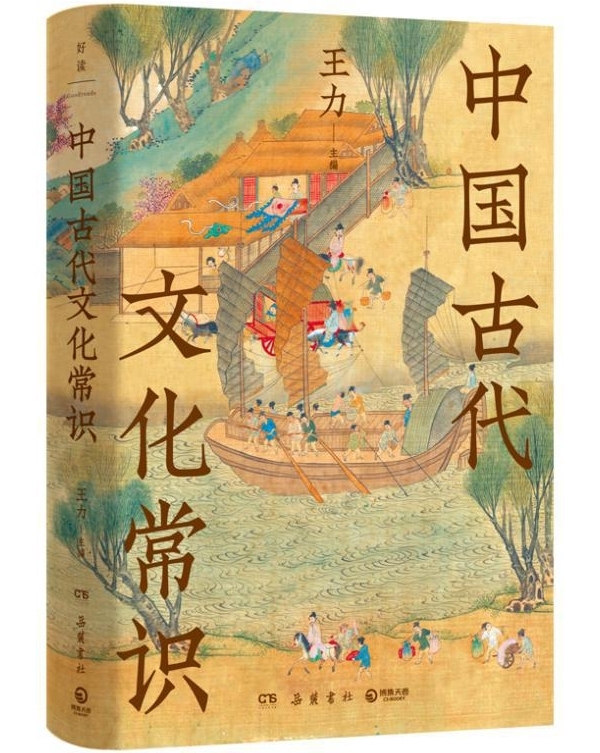 好读
Goodreads
中国古代文化常识
王力
主编
CS
岳麓書社
博集天卷
中国古代
文化常识
王力
主编
CS
岳麓書社
博集天卷
CS-BOOKY